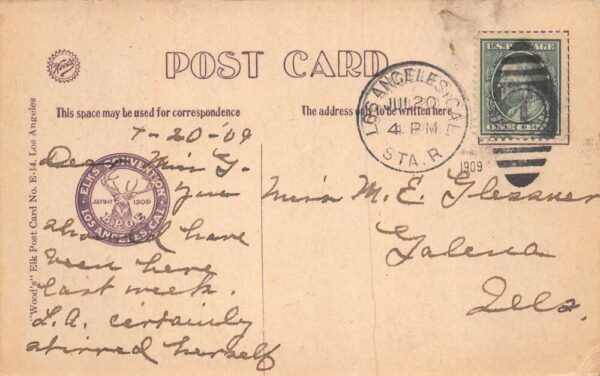 Woods
POST CARD
This space may be used for correspondence
The address only to be written here
"Wood's" Elk Post Card No. E-14. Los Angeles
U.S. POSTAGE
ONE CENT
LOS ANGELES, CAL.
JUL 20
4 PM
STA. R
1909
ELKS CONVENTION
JULY 11-17 1909
B.P.O.E.
LOS ANGELES, CAL.
7-20-09
Dear Miss G.
You
should have
been here
last week.
L.A. certainly
stirred herself
Miss M. E. Glessner
Galena
Ills.